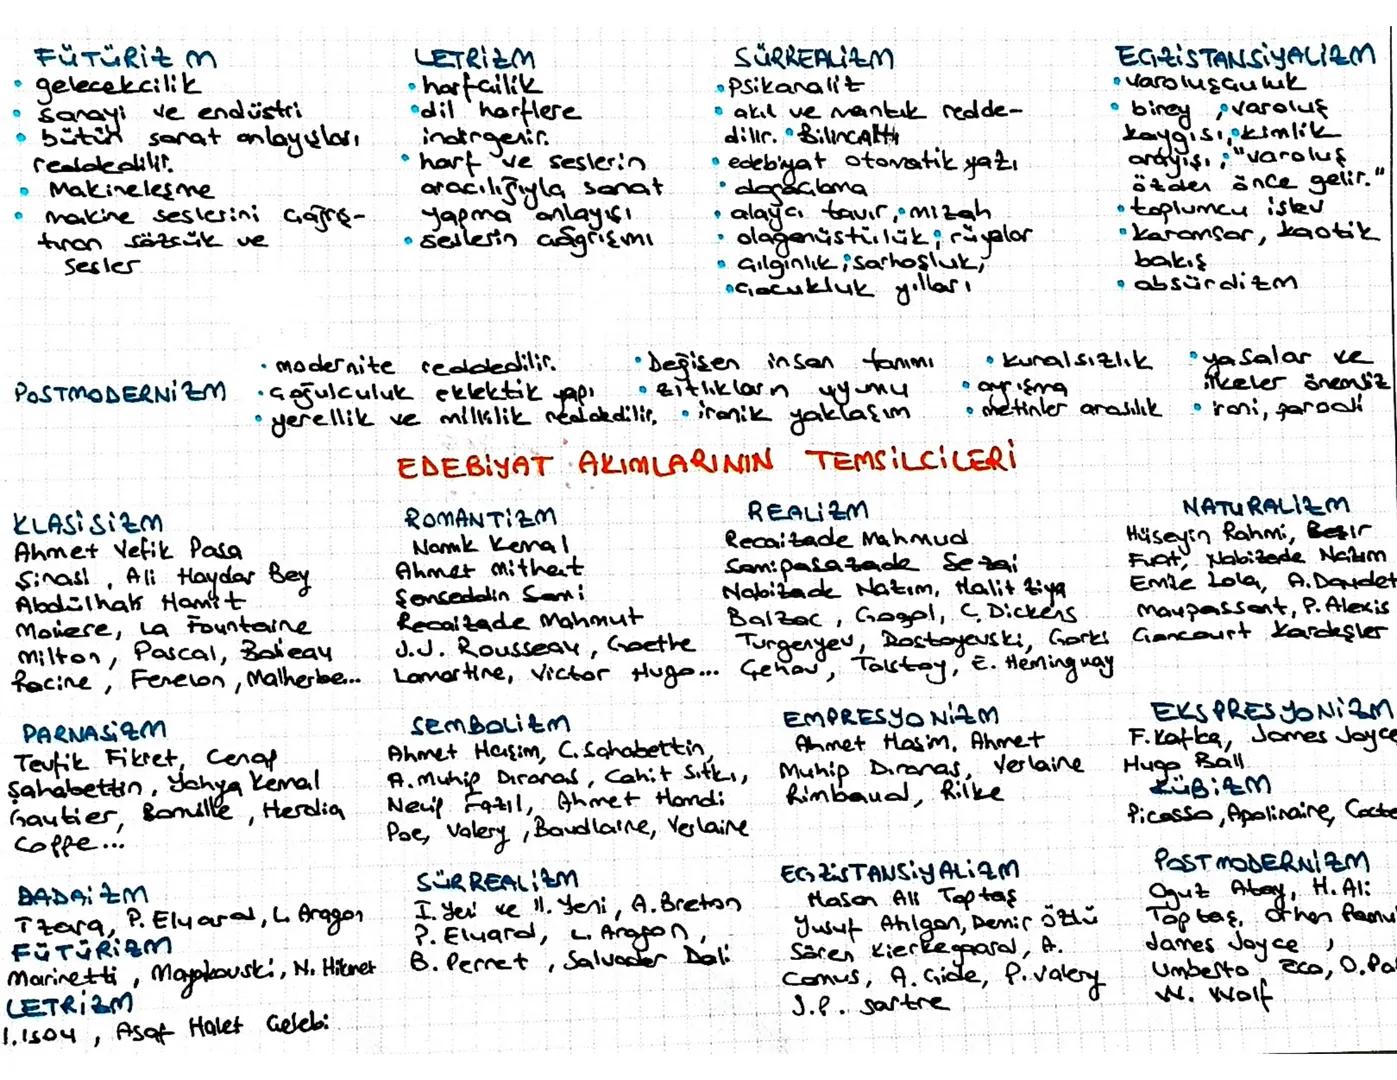 FÜTÜRİZM
• gelecekcilik
• sanayi ve endüstri
• bütün sanat anlayışları
reddedilir.
• Makineleşme
• makine seslerini çağrış-
tıran sözcük ve
sesler
LETRİZM
• harfcilik
• dil harflere
indirgenir.
• harf ve seslerin
aracılığıyla sanat
yapma anlayışı
• seslerin çağrışımı
SÜRREALİZM
• Psikanaliz
• akıl ve mantık redde-
dilir. • Bilinçaltı
• edebiyat otomatik yazı
• doğaçlama
• alaycı tavır, • mizah
• olağanüstülük, • rüyalar
• çılgınlık, • sarhoşluk,
• çocukluk yılları
EGZİSTANSİYALİZM
• varoluşçuluk
• birey, • varoluş
kaygısı, • kimlik
arayışı, • "varoluş
özden önce gelir."
• toplumcu işlev
• karamsar, kaotik
bakış
• absürdizm
POSTMODERNİZM
• modernite reddedilir.
• çoğulculuk eklektik yapı
• yerellik ve millilik reddedilir.
• Değişen insan tanımı
• zıtlıkların uyumu
• ironik yaklaşım
• kuralsızlık
• ayrışma
• metinler arasılık
• yasalar ve
ilkeler önemsiz
• ironi, parodi
EDEBİYAT AKIMLARININ TEMSİLCİLERİ
KLASİSİZM
Ahmet Vefik Paşa
Şinasi, Ali Haydar Bey
Abdülhak Hamit
Moliere, La Fountaine
Milton, Pascal, Boileau
Racine, Fenelon, Malherbe...
ROMANTİZM
Namık Kemal
Ahmet Mithat
Şemseddin Sami
Recaizade Mahmut
J.J. Rousseau, Goethe
Lamartine, Victor Hugo...
REALİZM
Recaizade Mahmud
Samipaşazade Sezai
Nabizade Nazım, Halit Ziya
Balzac, Gogol, C. Dickens
Turgenyev, Dostoyevski, Gorki
Çehov, Tolstoy, E. Hemingway
NATURALİZM
Hüseyin Rahmi, Beşir
Fuat, Nabizade Nazım
Emile Zola, A. Daudet
Maupassant, P. Alexis
Goncourt Kardeşler
PARNASİZM
Tevfik Fikret, Cenap
Şahabettin, Yahya Kemal
Gautier, Banville, Herdia
Coppe...
SEMBOLİZM
Ahmet Haşim, C. Şahabettin,
A. Muhip Dıranas, Cahit Sıtkı,
Necip Fazıl, Ahmet Hamdi
Poe, Valery, Baudlaire, Verlaine
EMPRESYONİZM
Ahmet Haşim, Ahmet
Muhip Dıranas, Verlaine
Rimbaud, Rilke
EKSPRESYONİZM
F. Kafka, James Joyce
Hugo Ball
KÜBİZM
Picasso, Apolinaire, Cocte
DADAİZM
Tzara, P. Eluard, L. Aragon
FÜTÜRİZM
Marinetti, Mayakovski, N. Hikmet
LETRİZM
I. Isou, Asaf Halet Çelebi
SÜRREALİZM
I. Yeni ve II. Yeni, A. Breton
P. Eluard, L. Aragon,
B. Perret, Salvador Dali
EGZİSTANSİYALİZM
Hasan Ali Toptaş
Yusuf Atılgan, Demir Özlü
Sören Kierkegaard, A.
Camus, A. Gide, P. Valery
J.P. Sartre
POSTMODERNİZM
Oğuz Atay, H. Ali
Toptaş, Orhan Pamu
James Joyce,
Umberto Eco, O. Pa
W. Wolf